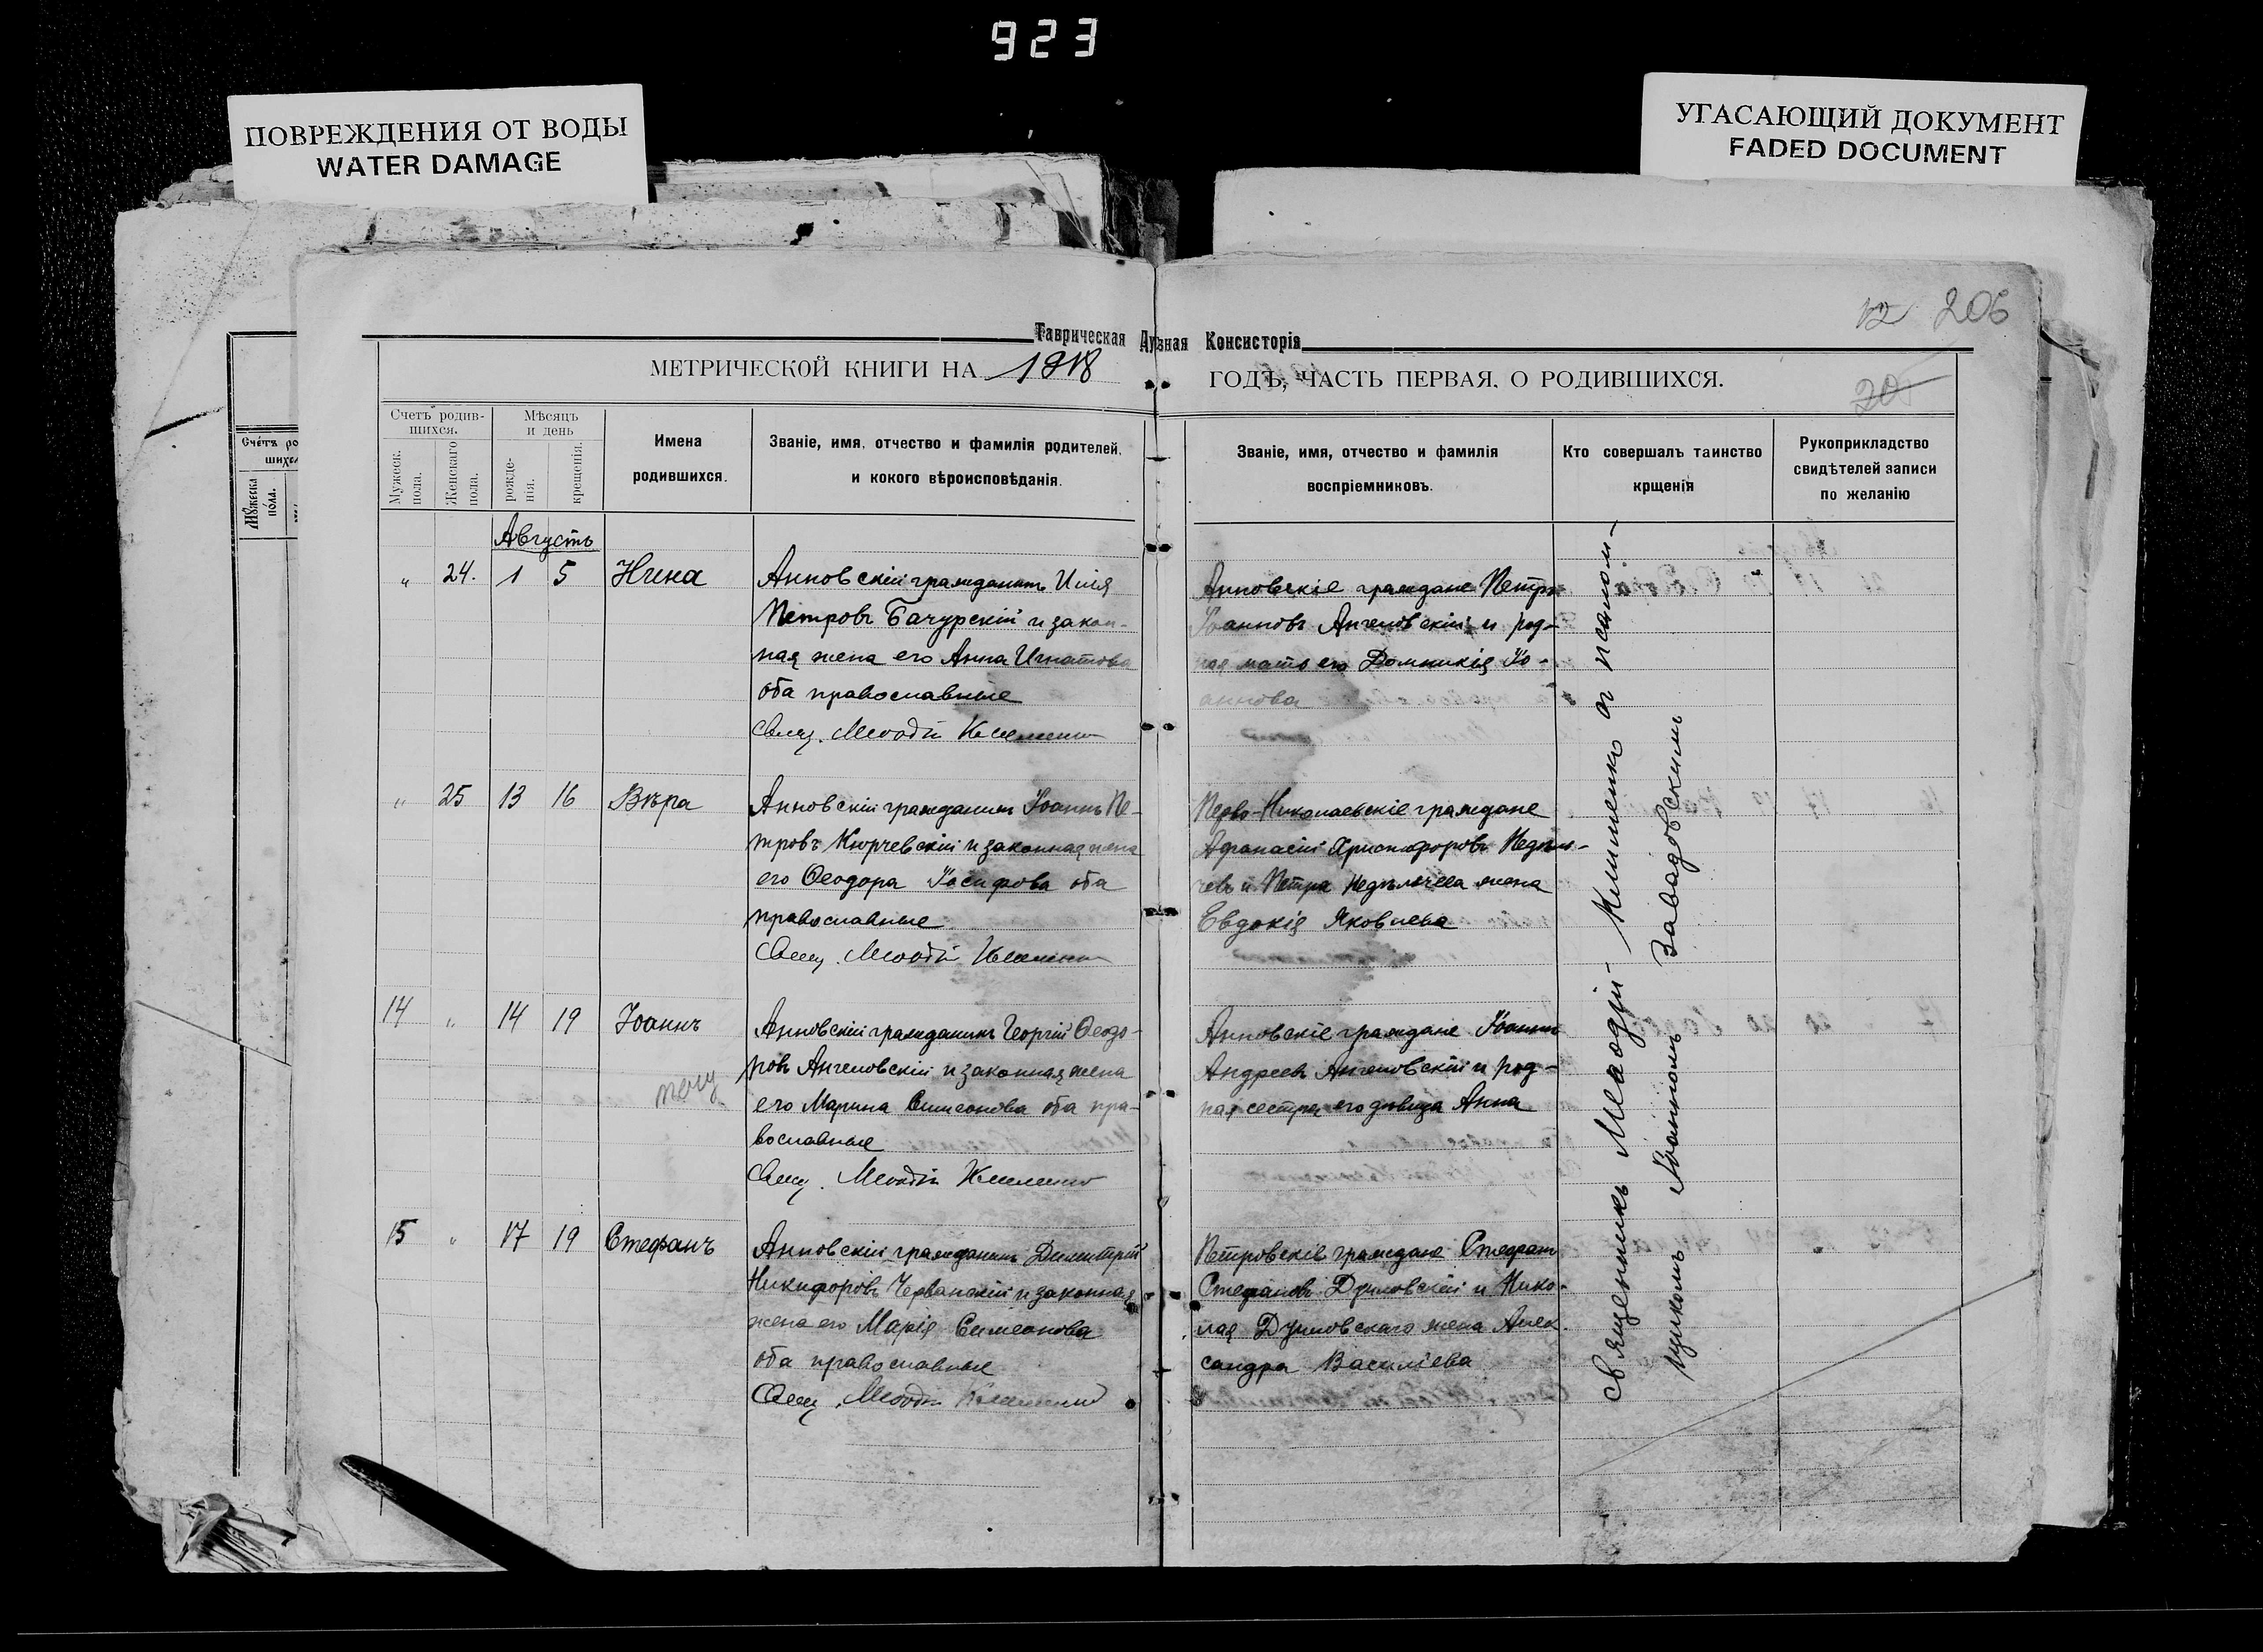 923
ПОВРЕЖДЕНИЯ ОТ ВОДЫ
WATER DAMAGE
УГАСАЮЩИЙ ДОКУМЕНТ
FADED DOCUMENT
12 206
Таврическая Духовная Консисторія
МЕТРИЧЕСКОЙ КНИГИ НА 1918 ГОДЪ, ЧАСТЬ ПЕРВАЯ, О РОДИВШИХСЯ.
205
Счетъ родив-
шихся.
Мужеск. пола.
Женскаго пола.
Мѣсяцъ
и день
рожде-
нія.
крещенія.
Имена
родившихся.
Званіе, имя, отчество и фамилія родителей,
и кокого вѣроисповѣданія.
Званіе, имя, отчество и фамилія
воспріемниковъ.
Кто совершалъ таинство
крщенія
Рукоприкладство
свидѣтелей записи
по желанію
Августъ
" 24. 1 5 Нина
Анновскій гражданинъ Илія
Петровъ Бачурскій и закон-
ная жена его Анна Игнатова
оба православные
Свящ. Меѳодій Клименко
Анновскіе граждане Петръ
Іоанновъ Ангеловскій и род-
ная мать его Домникія Іо-
аннова
" 25 13 16 Вѣра
Анновскій гражданинъ Іоаннъ Пе-
тровъ Кюрчевскій и законная жена
его Ѳеодора Іосифова оба
православные
Свящ. Меѳодій Клименко
Перво-Николаевскіе граждане
Афанасій Христофоровъ Недѣль-
чевъ и Петра Недѣльчева жена
Евдокія Яковлева
14 " 14 19 Іоаннъ
Анновскій гражданинъ Георгій Ѳеодо-
ровъ Ангеловскій и законная жена
его Марина Симеонова оба пра-
вославные
Свящ. Меѳодій Клименко
Анновскіе граждане Іоаннъ
Андреевъ Ангеловскій и род-
ная сестра его дѣвица Анна
15 " 17 19 Стефанъ
Анновскій гражданинъ Димитрій
Никифоровъ Черванскій и законная
жена его Марія Симеонова
оба православные
Свящ. Меѳодій Клименко
Петровскіе граждане Стефанъ
Стефановъ Думовскій и Нико-
лая Думовскаго жена Алек-
сандра Василіева
Священникъ Меѳодій Клименко съ псалом-
щикомъ Іоанномъ Завадовскимъ